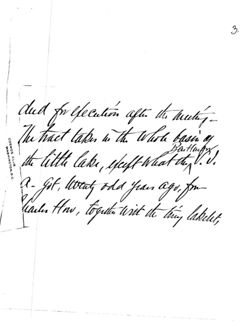 3
deed for execution after the meeting –
The tract takes in the whole basin of
the little lake, except what the V. I.
A – got, twenty odd years ago, from
Charles How, together with the tiny lakelet,